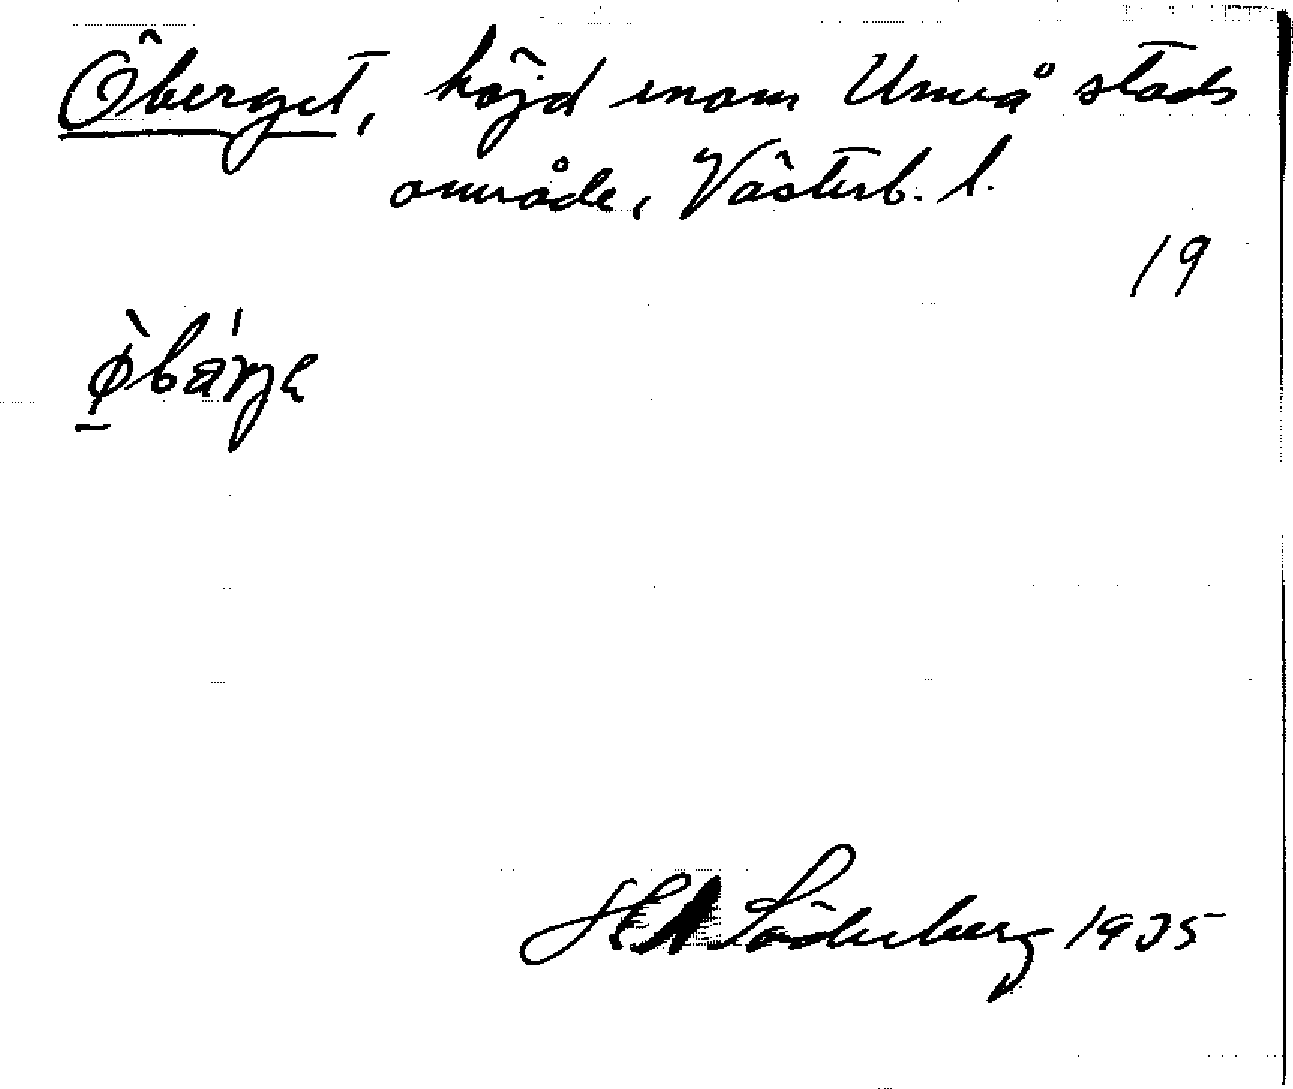 Öberget, höjd inom Umeå stads
område, Västerb. l.
19
Söderberg 1935